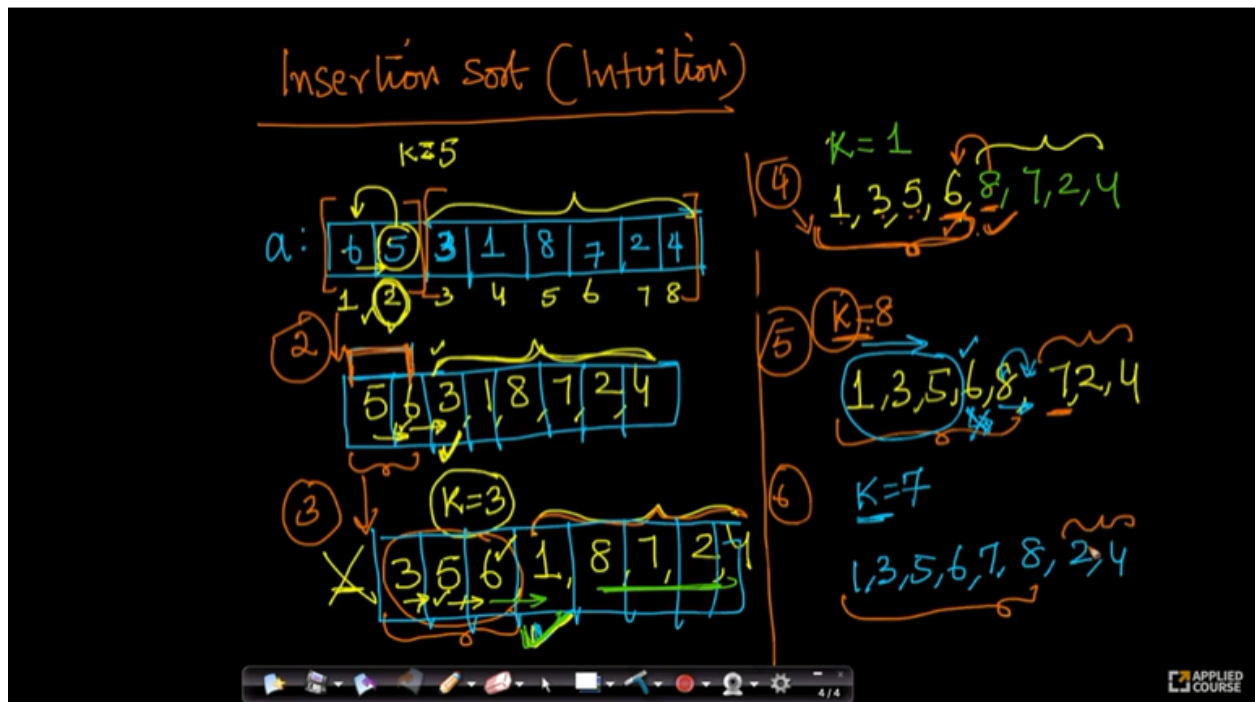 Insertion sort (Intuition)
K=5
a: 6 5 3 1 8 7 2 4
1, 2 3 4 5 6 7 8
2
5 6 3, 1, 8, 7, 2, 4
3
K=3
3 5 6 1, 8, 7, 2, 4
4
K=1
1, 3, 5, 6, 8, 7, 2, 4
5
K=8
1, 3, 5, 6, 8, 7, 2, 4
6
K=7
1, 3, 5, 6, 7, 8, 2, 4
4/4
APPLIED
COURSE